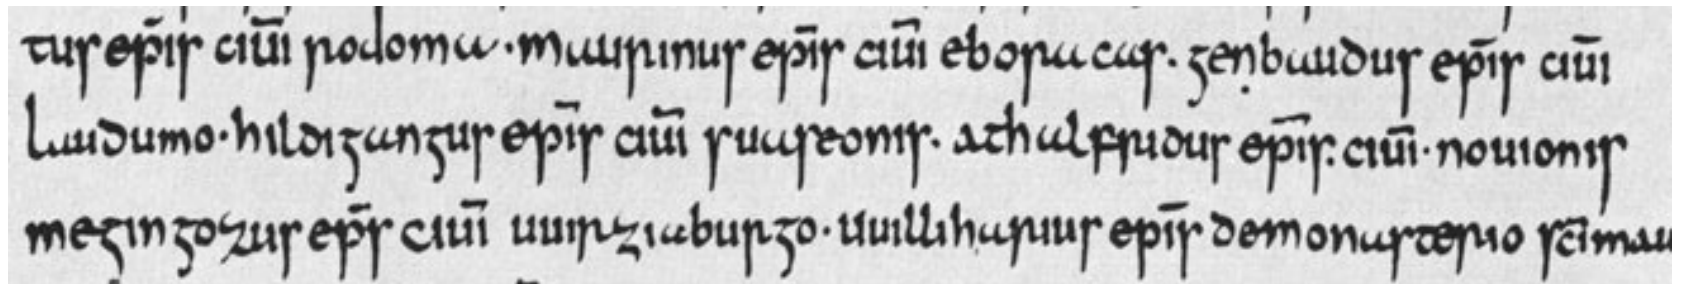 tus ep̄is ciūi rodoma · maurinus ep̄is ciūi eboracas. genbaudus ep̄is ciūi
laudumo · hildigangus ep̄is ciūi suaseonis. athalfridus ep̄is: ciūi · novionis
megingozus ep̄s ciūi uuirziaburgo · uuilliharius ep̄is demonasterio sc̄i mau